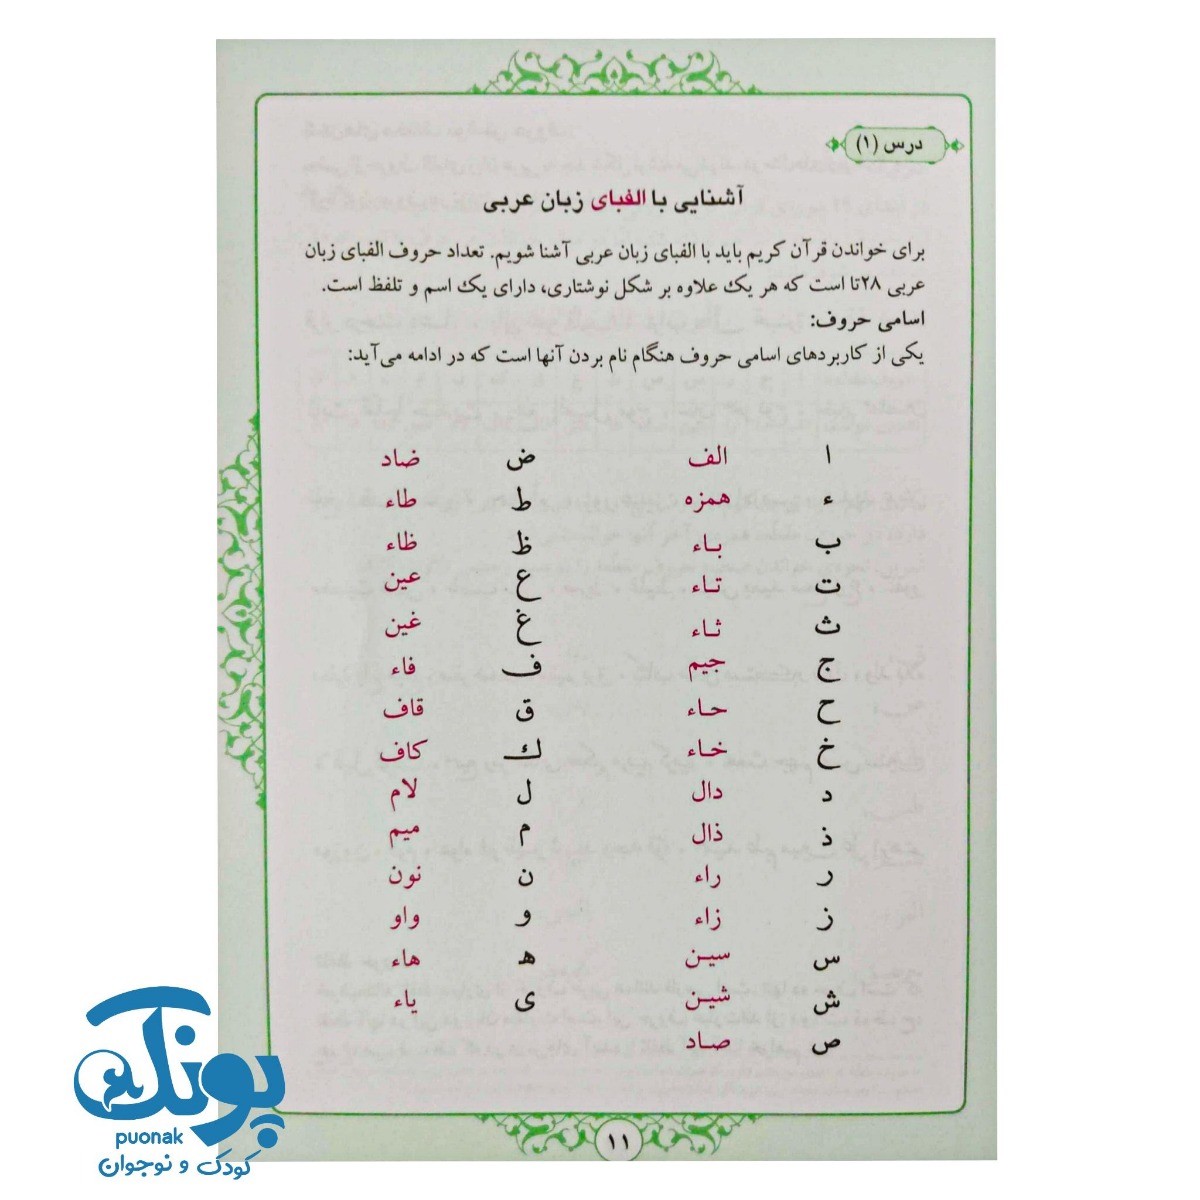 درس (۱)
آشنایی با الفبای زبان عربی
برای خواندن قرآن کریم باید با الفبای زبان عربی آشنا شویم. تعداد حروف الفبای زبان
عربی ۲۸تا است که هر یک علاوه بر شکل نوشتاری، دارای یک اسم و تلفظ است.
اسامی حروف:
یکی از کاربردهای اسامی حروف هنگام نام بردن آنها است که در ادامه می‌آید:
ا الف ض ضاد
ء همزه ط طاء
ب باء ظ ظاء
ت تاء ع عین
ث ثاء غ غین
ج جیم ف فاء
ح حاء ق قاف
خ خاء ك کاف
د دال ل لام
ذ ذال م میم
ر راء ن نون
ز زاء و واو
س سین ه هاء
ش شین ی یاء
ص صاد
۱۱
پونک
puonak
کودک و نوجوان